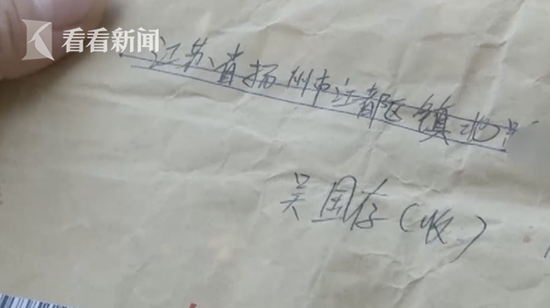 看看新闻
江苏省扬州市江都区镇北
吴国存(收)